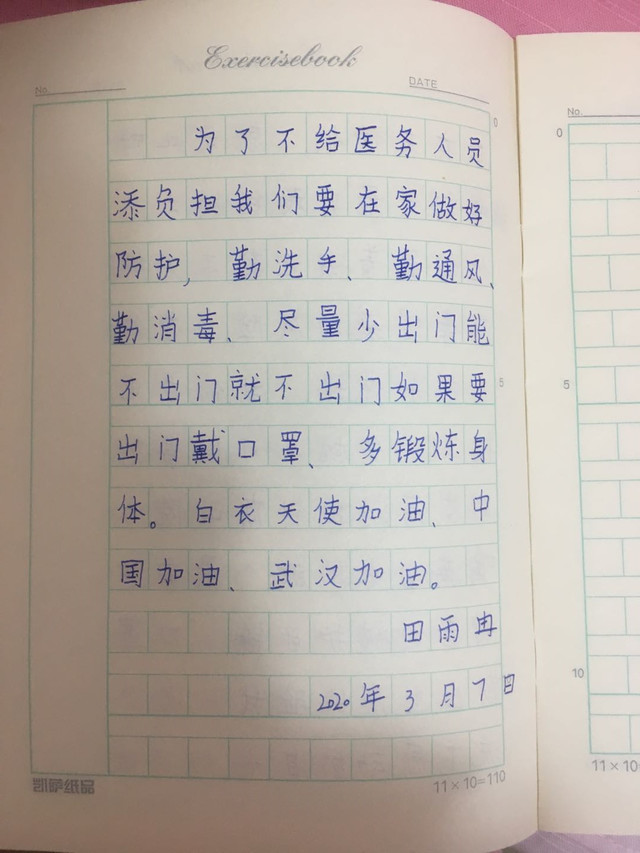 Exercisebook
No.
DATE
为了不给医务人员
添负担我们要在家做好
防护,勤洗手、勤通风、
勤消毒、尽量少出门能
不出门就不出门如果要
出门戴口罩、多锻炼身
体。白衣天使加油、中
国加油、武汉加油。
田雨冉
2020年3月7日
凯萨纸品
11×10=110
0
5
No.
0
5
10
11×10=